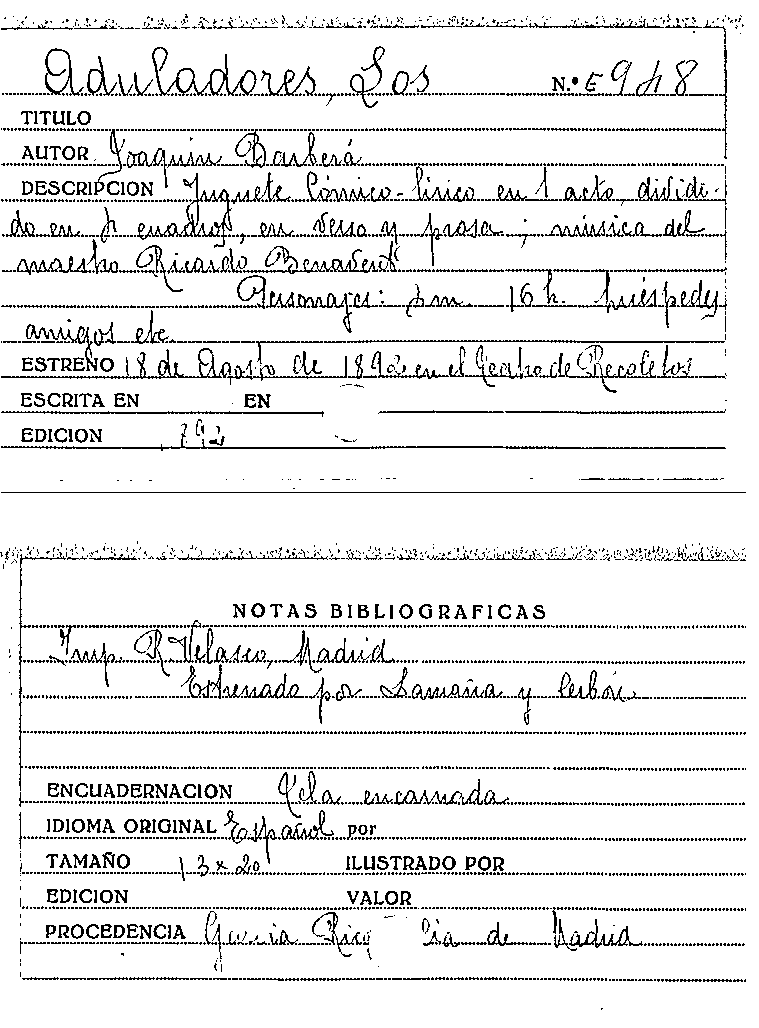 Aduladores, Los N.º E 948
TITULO
AUTOR Joaquin Barberá
DESCRIPCION Juguete Cómico-lirico en 1 acto, dividi-
do en 4 cuadros, en verso y prosa; música del
maestro Ricardo Benavent
Personajes: 4 m. 16 h. huéspedes
amigos etc.
ESTRENO 18 de Agosto de 1892 en el Teatro de Recoletos
ESCRITA EN EN
EDICION 892
NOTAS BIBLIOGRAFICAS
Imp. R Velasco, Madrid
Estrenado por y
ENCUADERNACION Tela encarnada
IDIOMA ORIGINAL Español por
TAMAÑO 13 x 20 ILUSTRADO POR
EDICION VALOR
PROCEDENCIA Garcia Rico Cia de Madrid